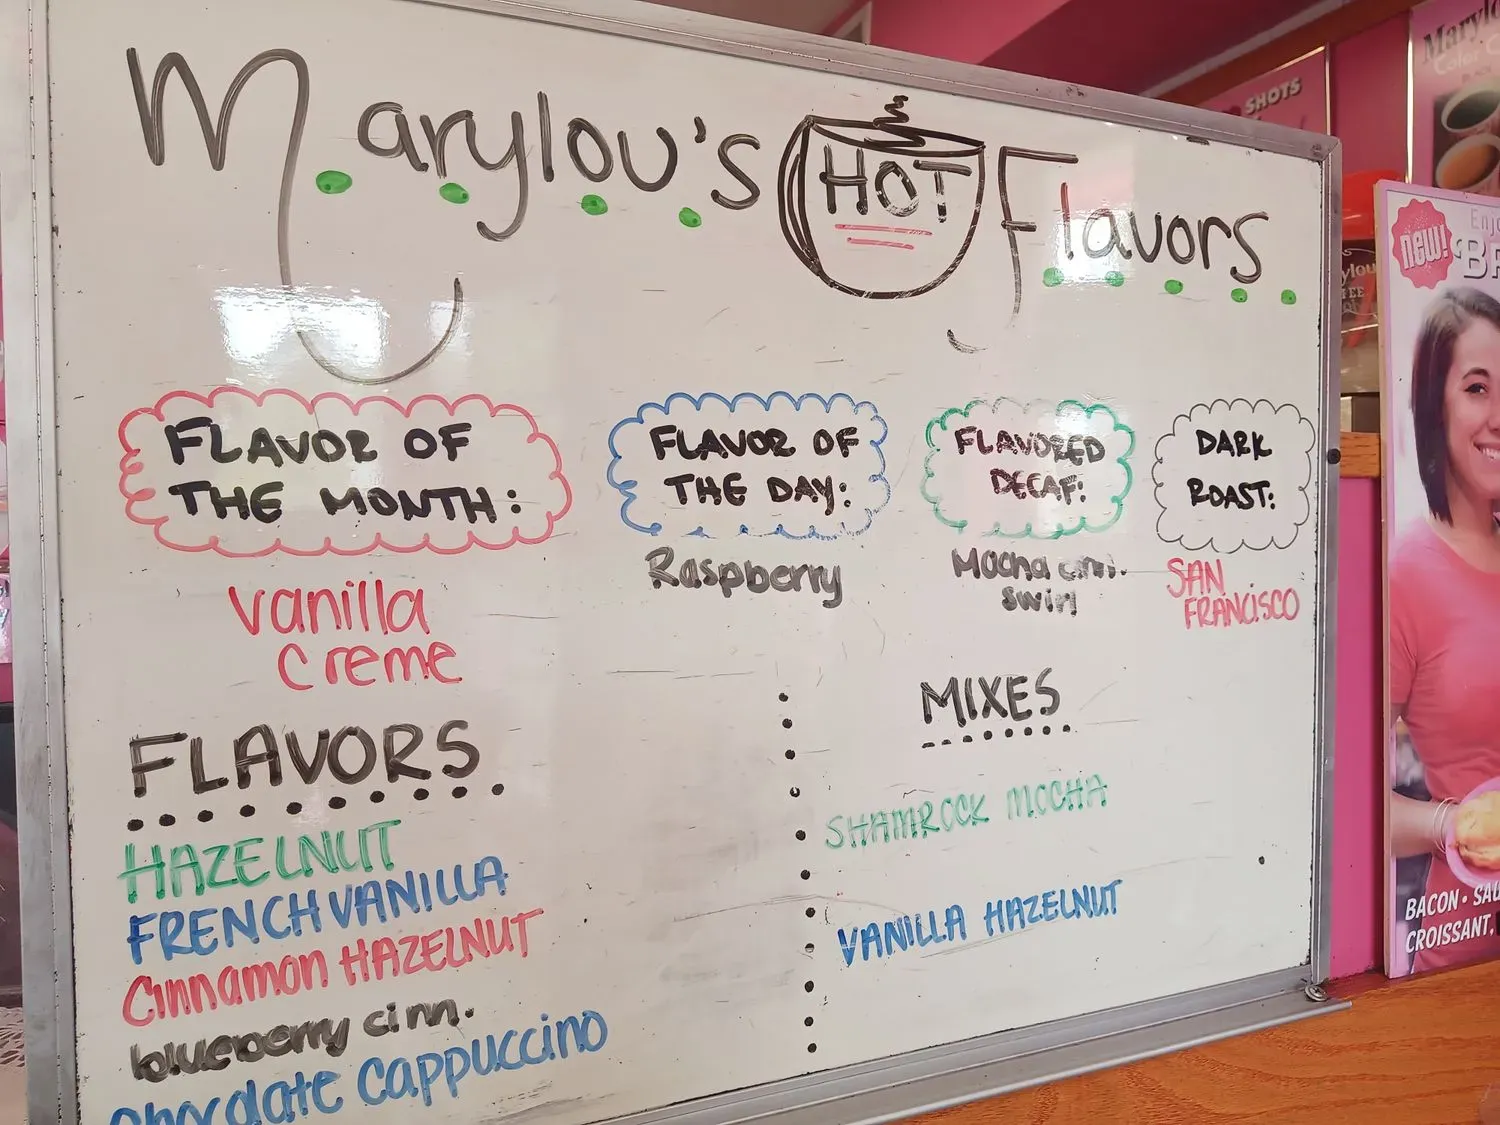 Marylou's HOT Flavors
FLAVOR OF
THE MONTH:
Vanilla
Creme
FLAVOR OF
THE DAY:
Raspberry
FLAVORED
DECAF:
Mocha cinn.
swirl
DARK
ROAST:
SAN
FRANCISCO
FLAVORS
HAZELNUT
FRENCH VANILLA
Cinnamon HAZELNUT
blueberry cinn.
Chocolate Cappuccino
MIXES
SHAMROCK MOCHA
VANILLA HAZELNUT
SHOTS
new!
BACON
CROISSANT,